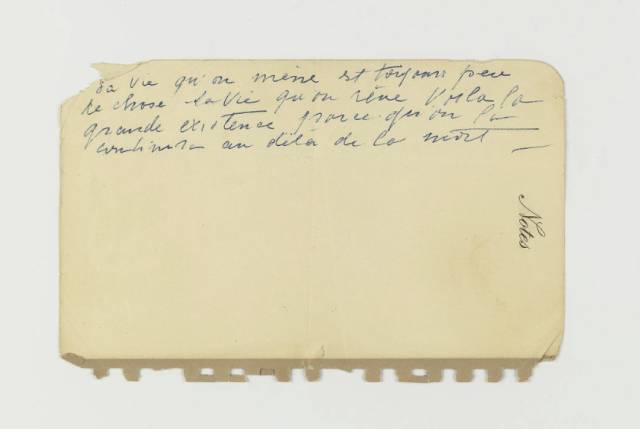 La Vie qu'on mène est toujours peu
de chose la Vie qu'on rêve Voila la
grande existence parce qu'on la
continura au dela de la mort —
Notes